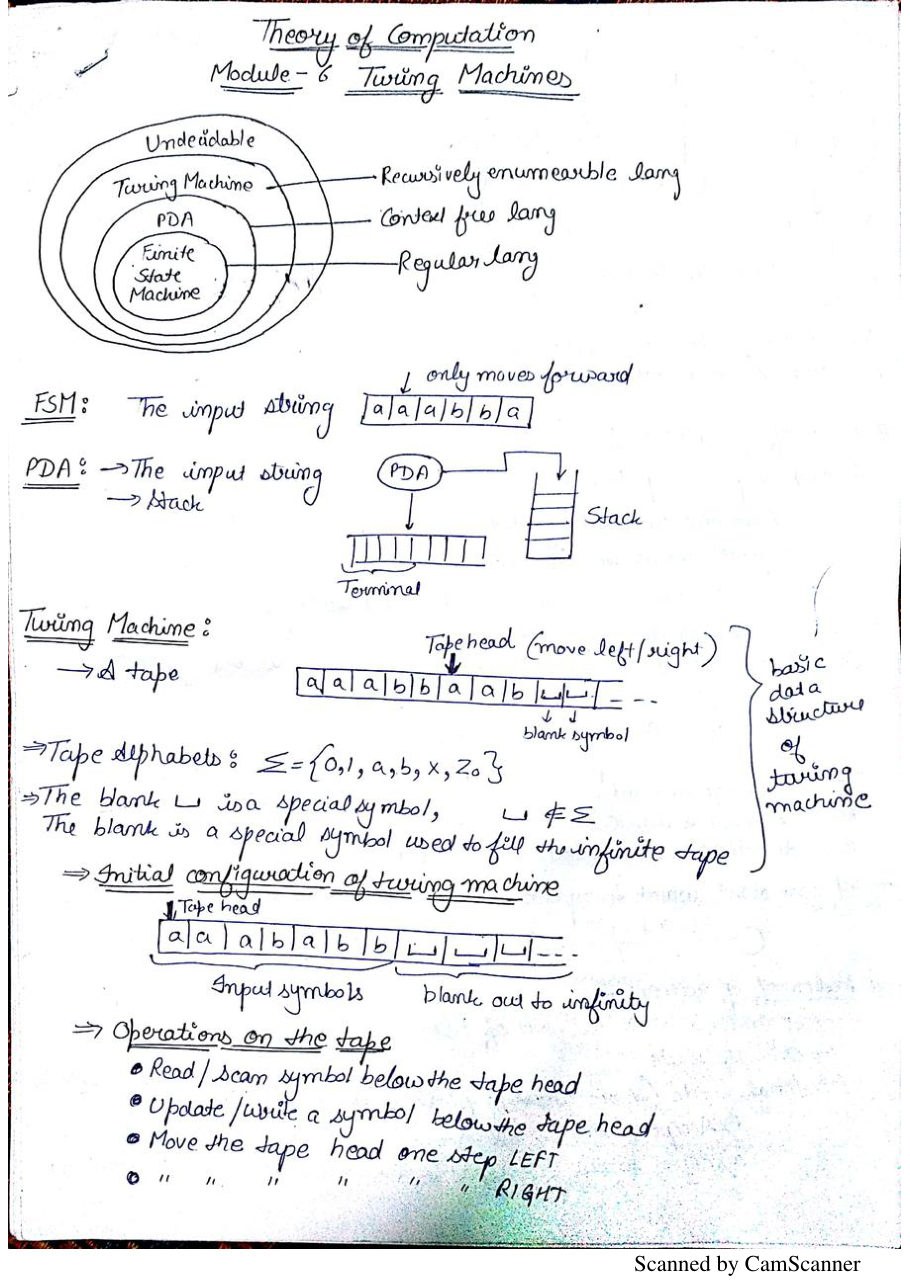 Theory of Computation
Module - 6 Turing Machines
Undecidable
Turing Machine
Recursively enumearble lang
PDA
Context free lang
Finite
State
Machine
Regular lang
↓ only moves forward
FSM: The input string |a|a|a|b|b|a|
PDA: → The input string
→ Stack
PDA
Stack
Terminal
Turing Machine:
Tape head (move left/right)
→ A tape
|a|a|a|b|b|a|a|b|⊔|⊔| - - -
blank symbol
basic
data
structure
of
turing
machine
⇒ Tape Alphabets: Σ = {0,1, a, b, x, Z₀}
⇒ The blank ⊔ is a special symbol, ⊔ ∉ Σ
The blank is a special symbol used to fill the infinite tape
⇒ Initial configuration of turing machine
↓ Tape head
|a|a|a|b|a|b|b|⊔|⊔|⊔|- - -
Input symbols blank out to infinity
⇒ Operations on the tape
• Read / scan symbol below the tape head
• Update / write a symbol below the tape head
• Move the tape head one step LEFT
• " " " " " " RIGHT
Scanned by CamScanner